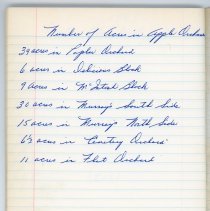 Number of Acres in Apple Orchard
39 acres in Poplar Orchard
6 acres in Delicious Block
9 acres in McIntosh Block
30 acres in Murray's South Side
15 acres in Murray's North Side
6½ acres in Cemetery Orchard
11 acres in Flat Orchard